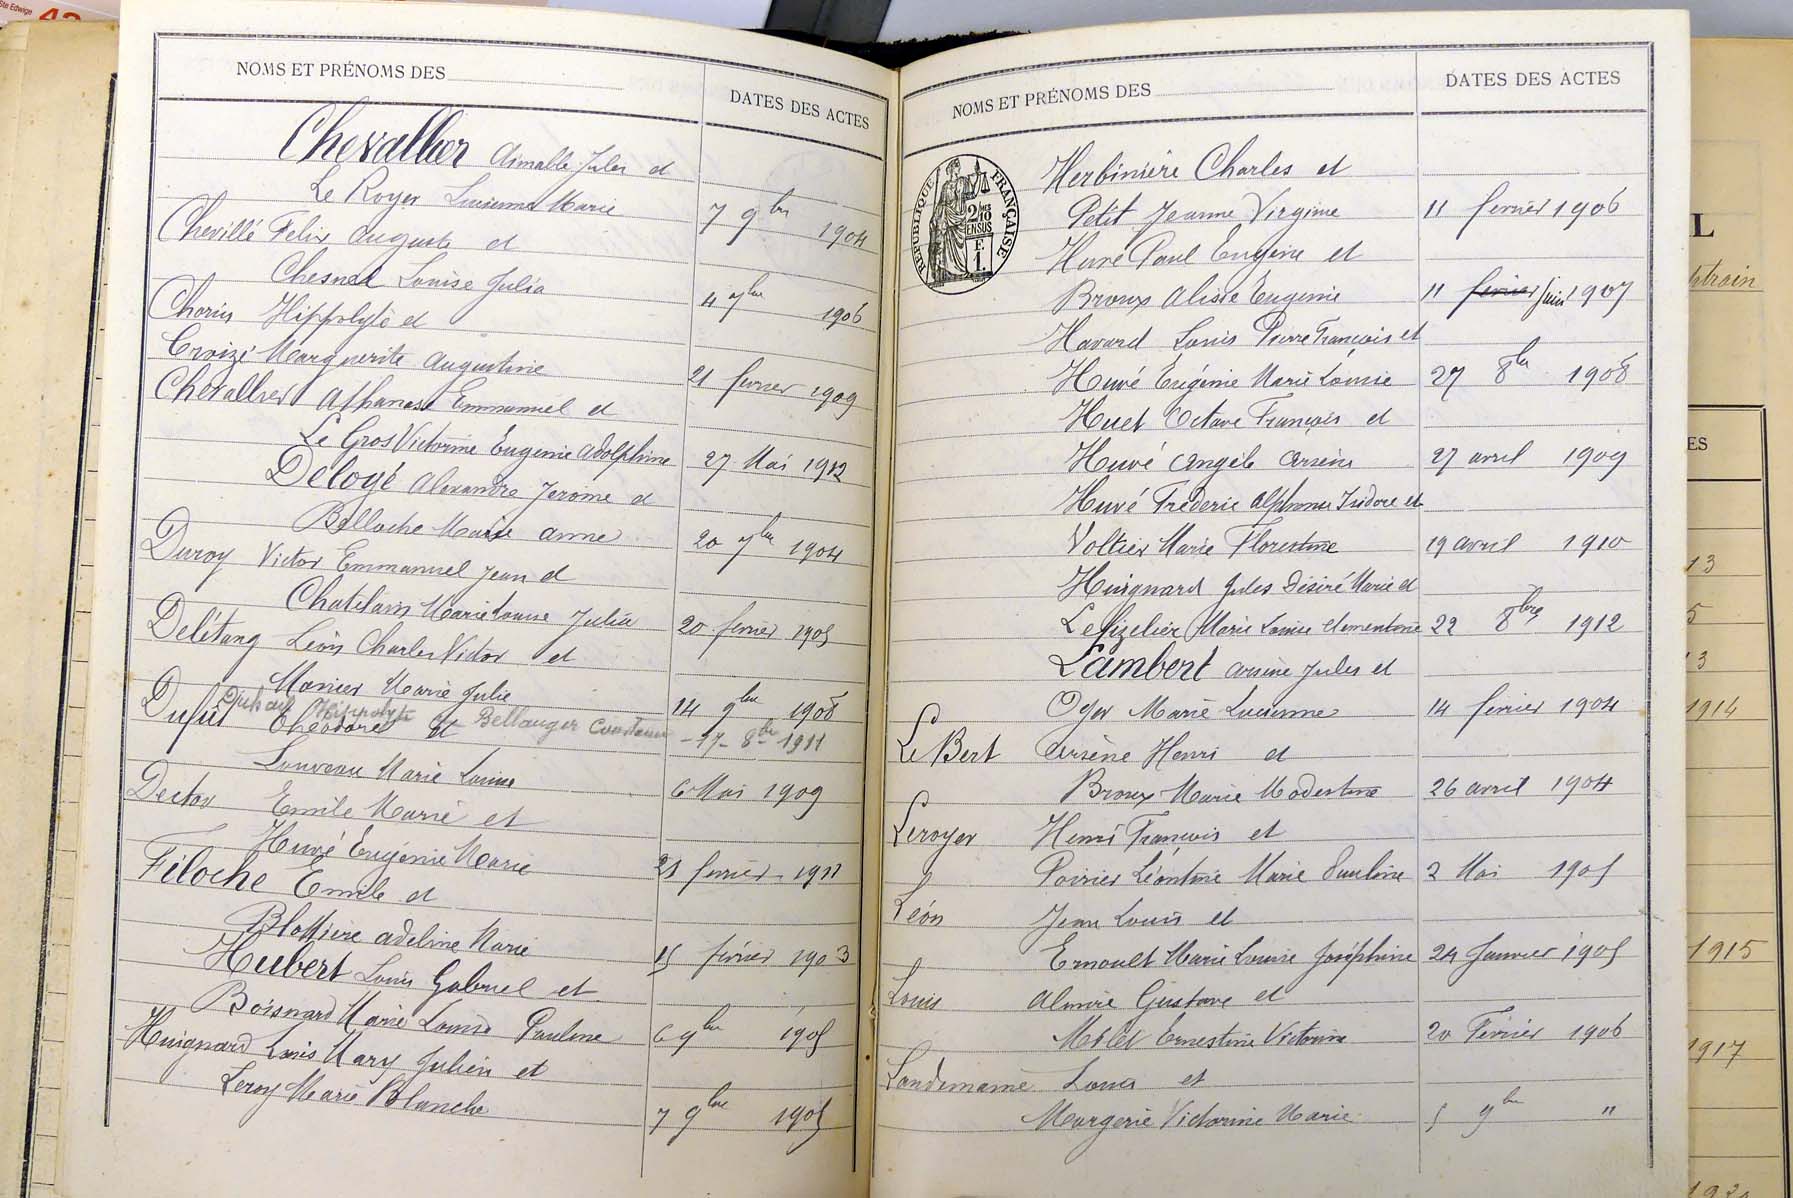 Ste Edwige
NOMS ET PRÉNOMS DES
DATES DES ACTES
Chevallier Aimable Jules et
Le Royer Lucienne Marie 7 9bre 1904
Chevillé Felix Auguste et
Chesnel Louise Julia 4 7bre 1906
Chorin Hippolyte et
Croizé Marguerite Augustine 21 fevrier 1909
Chevallier Athanase Emmanuel et
Le Gros Victorine Eugenie Adolphine 27 Mai 1912
Delogé Alexandre Jerome et
Belloche Marie Anne 20 7bre 1904
Duroy Victor Emmanuel Jean et
Chatelain Marie Louise Julia 20 fevrier 1905
Delétang Léon Charles Victor et
Manier Marie Julie 14 9bre 1908
Hippolyte et Bellanger Constance - 17 - 8bre 1911
Dufût Théodore
Louveau Marie Louise 6 Mai 1909
Dector Emile Marie et
Huvé Eugénie Marie fevrier 1911
Filoche Emile et
Blottiere Adeline Marie 15 février 1903
Hubert Louis Gabriel et
Boisnard Marie Louise Pauline 6 9bre 1905
Huignard Louis Mary Julien et
Leroy Marie Blanche 7 9bre 1905
NOMS ET PRÉNOMS DES
DATES DES ACTES
RÉPUBLIQUE FRANÇAISE
2/10
EN SUS
F.
1.
Herbinière Charles et
Petit Jeanne Virginie 11 fevrier 1906
Huvé Paul Eugène et
Broux Alisie Eugenie 11 fevrier juin 1907
Havard Louis Pierre François et
Huvé Eugénie Marie Louise 27 8bre 1908
Huet Octave François et
Huvé Angèle Arsène 27 avril 1909
Huvé Fréderic Alphonse Isidore et
Voltier Marie Florentine 19 avril 1910
Huignard Jules Désiré Marie et
Lefizelier Marie Louise Clementine 22 8bre 1912
Lambert Arsène Jules et
Oger Marie Lucienne 14 fevrier 1904
Le Bert Arsène Henri et
Broux Marie Modestine 26 avril 1904
Leroyer Henri François et
Poirier Léontine Marie Pauline 2 Mai 1905
Léon Jean Louis et
Ernoult Marie Louise Joséphine 24 Janvier 1905
Louis Gustave et
Ernestine Victorine 20 Février 1906
Landemaine Louis et
Margerie Victorine Marie 5 9bre "
L
ES
13
5
13
1914
1915
1917